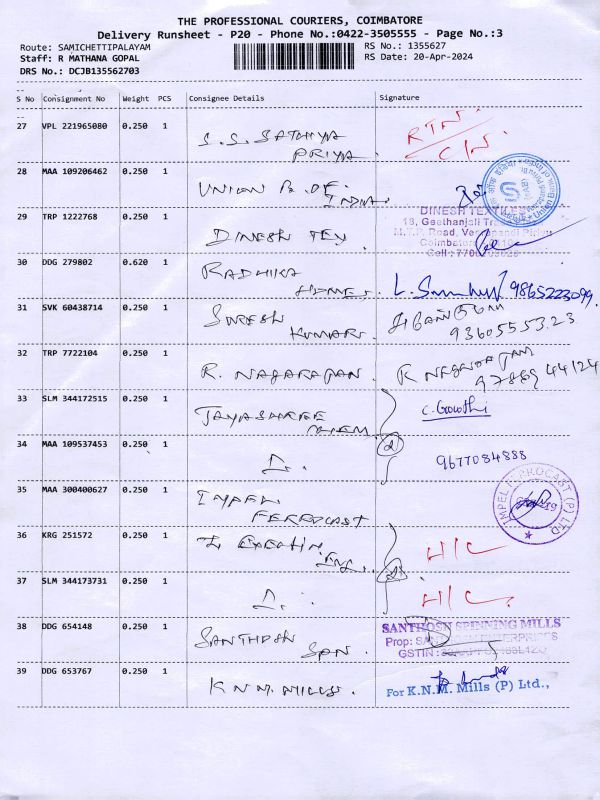 THE PROFESSIONAL COURIERS, COIMBATORE
Delivery Runsheet - P20 - Phone No.:0422-3505555 - Page No.:3
Route: SAMICHETTIPALAYAM RS No.: 1355627
Staff: R MATHANA GOPAL RS Date: 20-Apr-2024
DRS No.: DCJB135562703
S No Consignment No Weight PCS Consignee Details Signature
27 VPL 221965080 0.250 1 S.S. SATHYA PRIYA RTN. C/N.
28 MAA 109206462 0.250 1 UNION B. OF. INDIA
29 TRP 1222768 0.250 1 DINESH TEX
DINESH TEXTILES
18, Geethanjali
M.T.P. Road,
Coimbatore
Cell :
30 DDG 279802 0.620 1 RADHIKA HOMES. 9865223099
31 SVK 60438714 0.250 1 SURESH KUMAR. 9360555323
32 TRP 7722104 0.250 1 R. NAGARAJAN. R NAGARAJAN 9788944124
33 SLM 344172515 0.250 1 JAYASHREE C. Gowthi
34 MAA 109537453 0.250 1 2 9677084888
35 MAA 300400627 0.250 1 IMPEL FERROCAST
IMPEL FERROCAST (P) LTD
36 KRG 251572 0.250 1 H/C
37 SLM 344173731 0.250 1 H/C.
38 DDG 654148 0.250 1 SANTHOSH SPN.
SANTHOSH SPINNING MILLS
Prop: ENTERPRISES
GSTIN :
39 DDG 653767 0.250 1 K.N.M. MILLS.
For K.N.M. Mills (P) Ltd.,